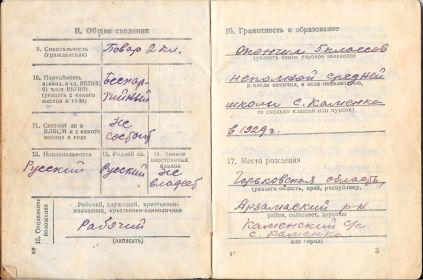 II. Общие сведения
9. Специальность
(гражданская)
Повар 2 кл.
10. Партийность
Беспар-
тийный
(указать с какого
месяца и года)
11. Состоит ли в
ВЛКСМ и с какого
месяца и года
Не
состоит
12. Национальность
Русский
13. Родной яз.
Русский
14. Знание
иностранных
языков
Не
владеет
15. Социальное
положение
Рабочий, служащий, крестьянин-
колхозник, крестьянин-единоличник
Рабочий
(написать)
16. Грамотность и образование
Окончил 5 классов
(указать какое учебное заведение
неполной средней
и когда окончил, а если не окончил,
школы с. Каменка
то сколько классов или курсов)
в 1929 г.
17. Место рождения
Горьковская область,
(указать область, край, республику,
Арзамаский р-н
район, сельсовет, деревню
Каменский с/с
с. Каменка
или город)
3